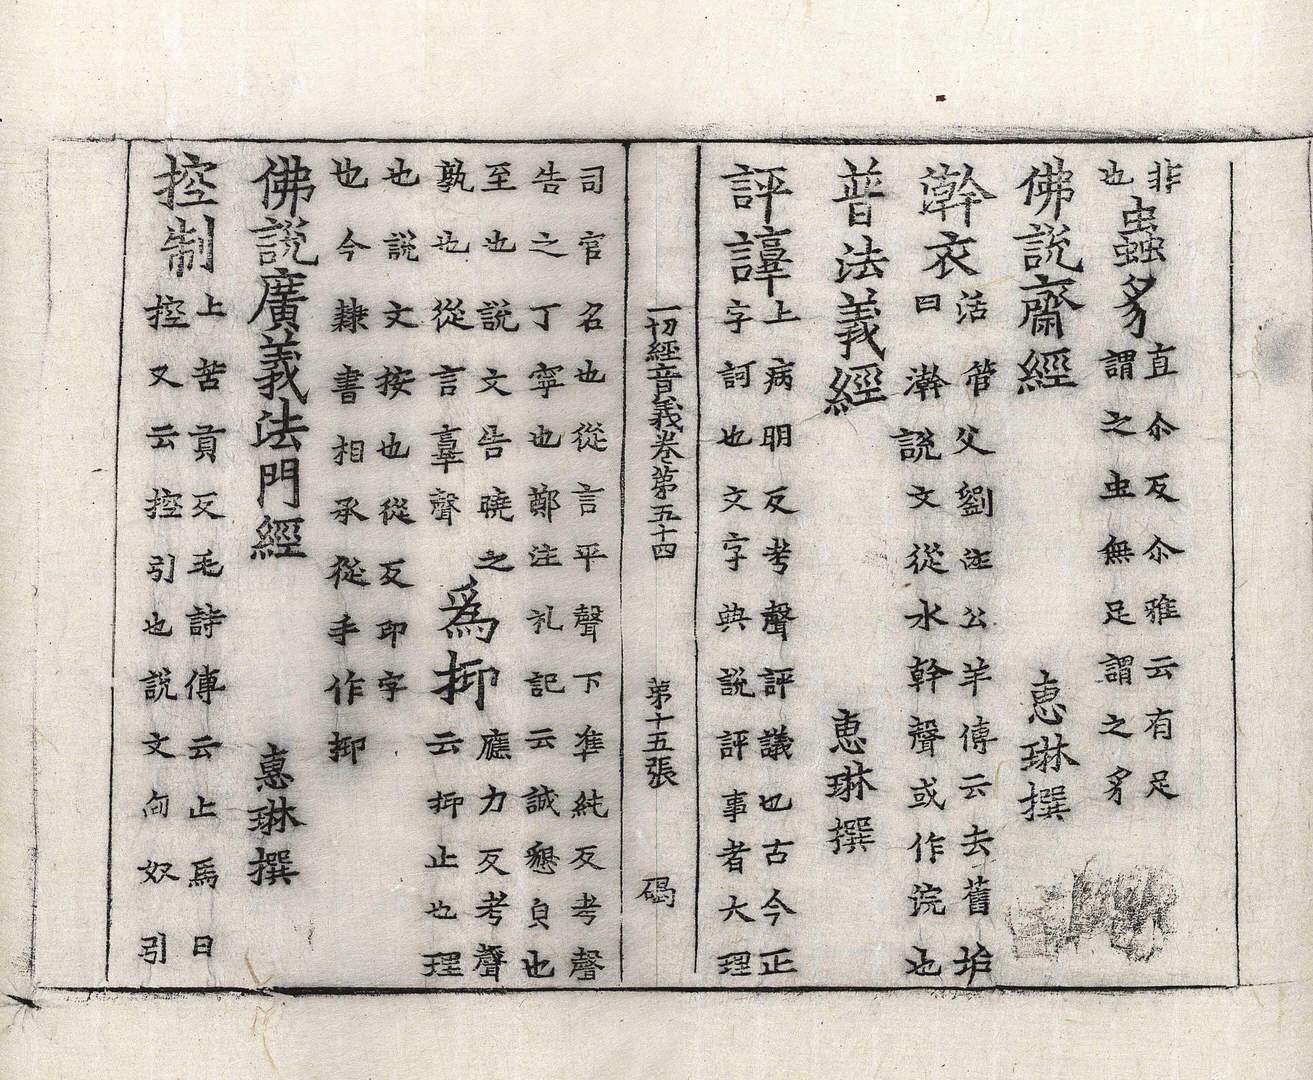 非
也
蟲豸
直尒反尒雅云有足
謂之虫無足謂之豸
佛說齋經 惠琳撰
澣衣
活管父劉注公羊傳云去舊垢
曰澣說文從水幹聲或作浣也
普法義經 惠琳撰
評諄
上病明反考聲評議也古今正
字訶也文字典說評事者大理
一切經音義卷第五十四 第十五張 碣
司官名也從言平聲下准純反考聲
告之丁寧也鄭注礼記云誠懇皃也
至也說文告曉之
孰也從言𦎫聲
爲抑
應力反考聲
云抑止也理
也說文按也從反印字
也今隸書相承從手作抑
佛說廣義法門經 惠琳撰
控制
上苦貢反毛詩傳云止爲曰
控又云控引也說文匈奴引